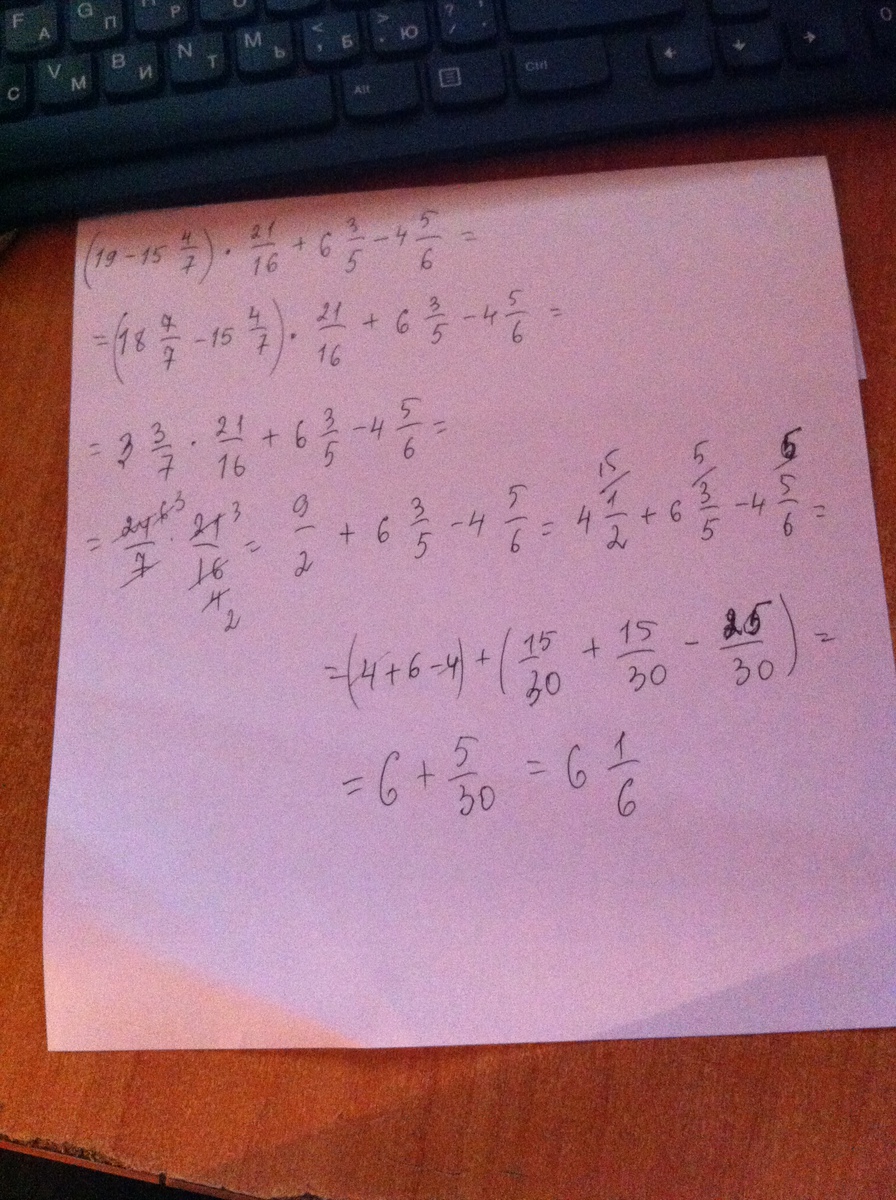 F А G П Р
C V М B И N Т M Ь < , Б > . Ю ? / .
Alt Ctrl
(19 - 15 4/7) · 21/16 + 6 3/5 - 4 5/6 =
= (18 7/7 - 15 4/7) · 21/16 + 6 3/5 - 4 5/6 =
= 3 3/7 · 21/16 + 6 3/5 - 4 5/6 =
= 24/7 · 21/16 = 9/2 + 6 3/5 - 4 5/6 = 4 1/2 + 6 3/5 - 4 5/6 =
= (4 + 6 - 4) + (15/30 + 15/30 - 25/30) =
= 6 + 5/30 = 6 1/6